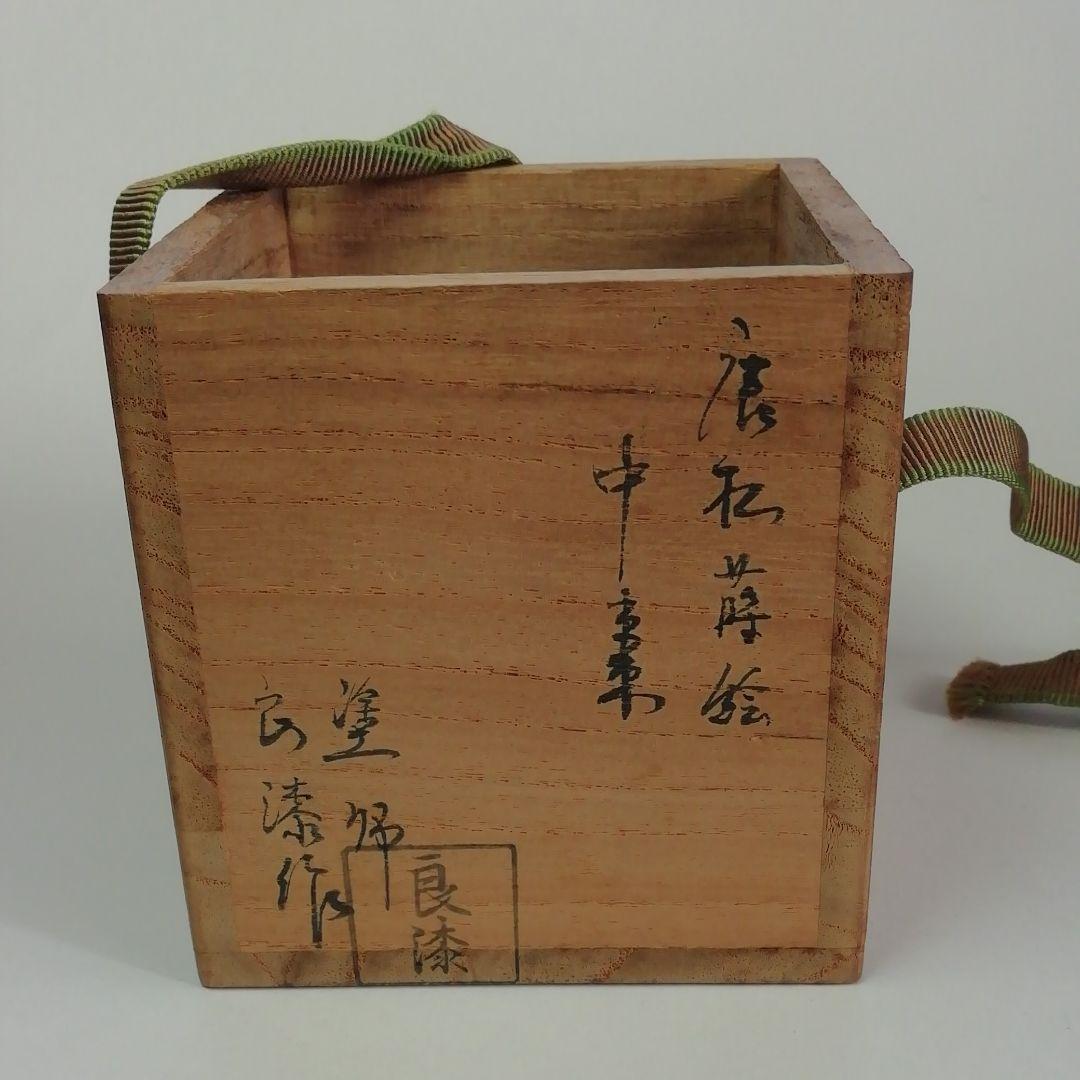 唐松蒔絵
中棗
塗師
良漆作
良漆